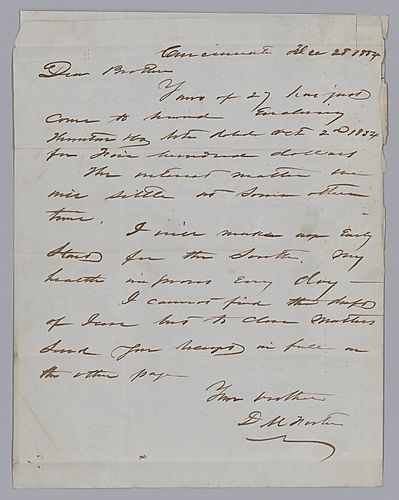 Cincinnati Dec 28 1854
Dear Brother
Yours of 27 has just
come to hand Enclosing
Note dated Oct 2nd 1854
for Five hundred dollars
The interest matter we
will settle at some other
time.
I will make an Early
Start for the South. My
health improves Every day —
I cannot find the draft
of but to close matters
Send you receipt in full on
the other page
Your brother
D M